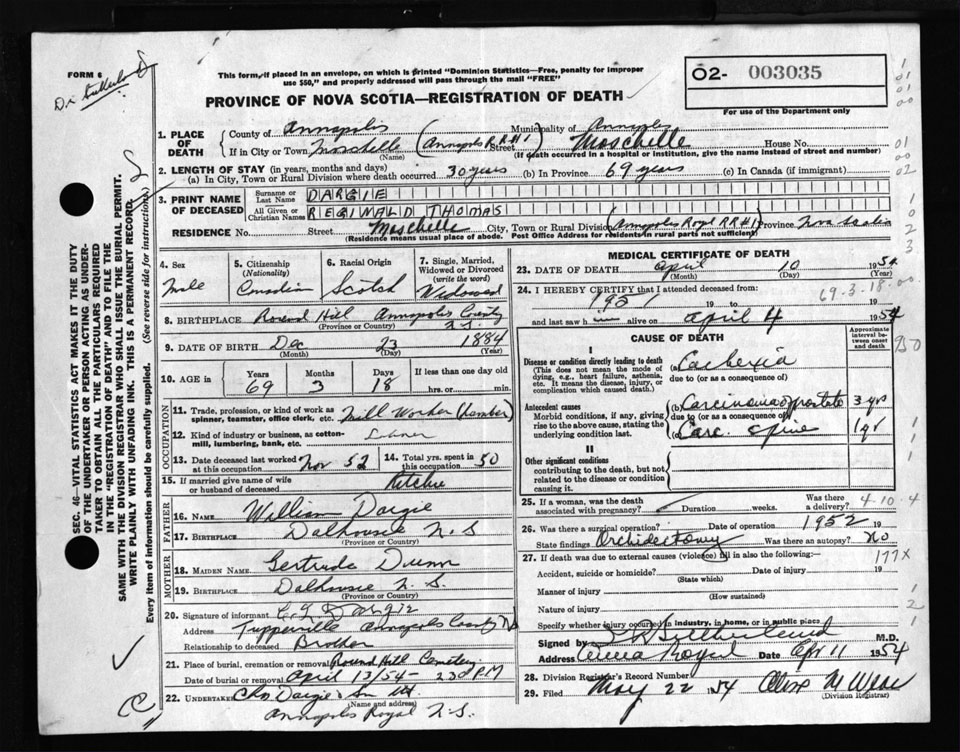 FORM 6
Dr Sutherland
This form, if placed in an envelope, on which is printed "Dominion Statistics—Free, penalty for improper
use $50," and properly addressed will pass through the mail "FREE"
PROVINCE OF NOVA SCOTIA—REGISTRATION OF DEATH
O2- 003035
For use of the Department only
SEC. 46—VITAL STATISTICS ACT MAKES IT THE DUTY
OF THE UNDERTAKER OR PERSON ACTING AS UNDER-
TAKER TO OBTAIN ALL THE PARTICULARS REQUIRED
IN THE "REGISTRATION OF DEATH" AND TO FILE THE
SAME WITH THE DIVISION REGISTRAR WHO SHALL ISSUE THE BURIAL PERMIT.
WRITE PLAINLY WITH UNFADING INK. THIS IS A PERMANENT RECORD.
Every item of information should be carefully supplied. (See reverse side for instructions)
1. PLACE OF DEATH
County of Annapolis Municipality of Annapolis
If in City or Town Moschelle (Annapolis R R #1) Street Moschelle House No.
(Name) (If death occurred in a hospital or institution, give the name instead of street and number)
2. LENGTH OF STAY (in years, months and days)
(a) In City, Town or Rural Division where death occurred 30 years (b) In Province 69 years (c) In Canada (if immigrant)
3. PRINT NAME OF DECEASED
Surname or Last Name DARGIE
All Given or Christian Names REGINALD THOMAS
RESIDENCE No. Street Moschelle City, Town or Rural Division (Annapolis Royal RR#1) Province Nova Scotia
(Residence means usual place of abode. Post Office Address for residents in rural parts not sufficient)
4. Sex Male
5. Citizenship (Nationality) Canadian
6. Racial Origin Scotch
7. Single, Married, Widowed or Divorced (write the word) Widowed
8. BIRTHPLACE Round Hill Annapolis County N.S.
(Province or Country)
9. DATE OF BIRTH Dec 23 1884
(Month) (Day) (Year)
10. AGE in Years 69 Months 3 Days 18 If less than one day hrs. or min.
OCCUPATION
11. Trade, profession, or kind of work as spinner, teamster, office clerk, etc. Mill Worker (Lumber)
12. Kind of industry or business, as cotton-mill, lumbering, bank, etc.
13. Date deceased last worked at this occupation Nov 52
14. Total yrs. spent in this occupation 50
15. If married give name of wife or husband of deceased Ritchie
FATHER
16. NAME William Dargie
17. BIRTHPLACE Dalhousie N.S
(Province or Country)
MOTHER
18. MAIDEN NAME Gertrude Dunn
19. BIRTHPLACE Dalhousie N.S.
(Province or Country)
20. Signature of informant Dargie
Address Tupperville Annapolis County NS
Relationship to deceased Brother
21. Place of burial, cremation or removal Round Hill Cemetery
Date of burial or removal April 13/54 - 230 PM
22. UNDERTAKER Chas Dargie & Son Ltd
(Name and address)
Annapolis Royal N.S.
MEDICAL CERTIFICATE OF DEATH
23. DATE OF DEATH April 10 1954
(Month) (Day) (Year)
24. I HEREBY CERTIFY that I attended deceased from:
1951 19 to 19
69-3-18-00
and last saw h im alive on April 4 1954
CAUSE OF DEATH
Approximate interval between onset and death
I
Disease or condition directly leading to death
(This does not mean the mode of dying, e.g., heart failure, asthenia, etc. It means the disease, injury, or complication which caused death.)
(a) Cachexia
due to (or as a consequence of)
Antecedent causes
Morbid conditions, if any, giving rise to the above cause, stating the underlying condition last.
(b) Carcinoma of prostate 3 yrs
due to (or as a consequence of)
(c) Carc. spine 1 yr
II
Other significant conditions
contributing to the death, but not related to the disease or condition causing it.
25. If a woman, was the death associated with pregnancy? Duration weeks. Was there a delivery?
4-10-4
26. Was there a surgical operation? Date of operation 1952 19
State findings Orchidectomy Was there an autopsy? No
27. If death was due to external causes (violence) fill in also the following:
177X
Accident, suicide or homicide? Date of injury 19
(State which)
Manner of injury
(How sustained)
Nature of injury
Specify whether injury occurred in industry, in home, or in public place
Signed by Sutherland M.D.
Address Anna Royal Date Apr 11 1954
28. Division Registrar's Record Number
29. Filed May 22 1954
(Division Registrar)